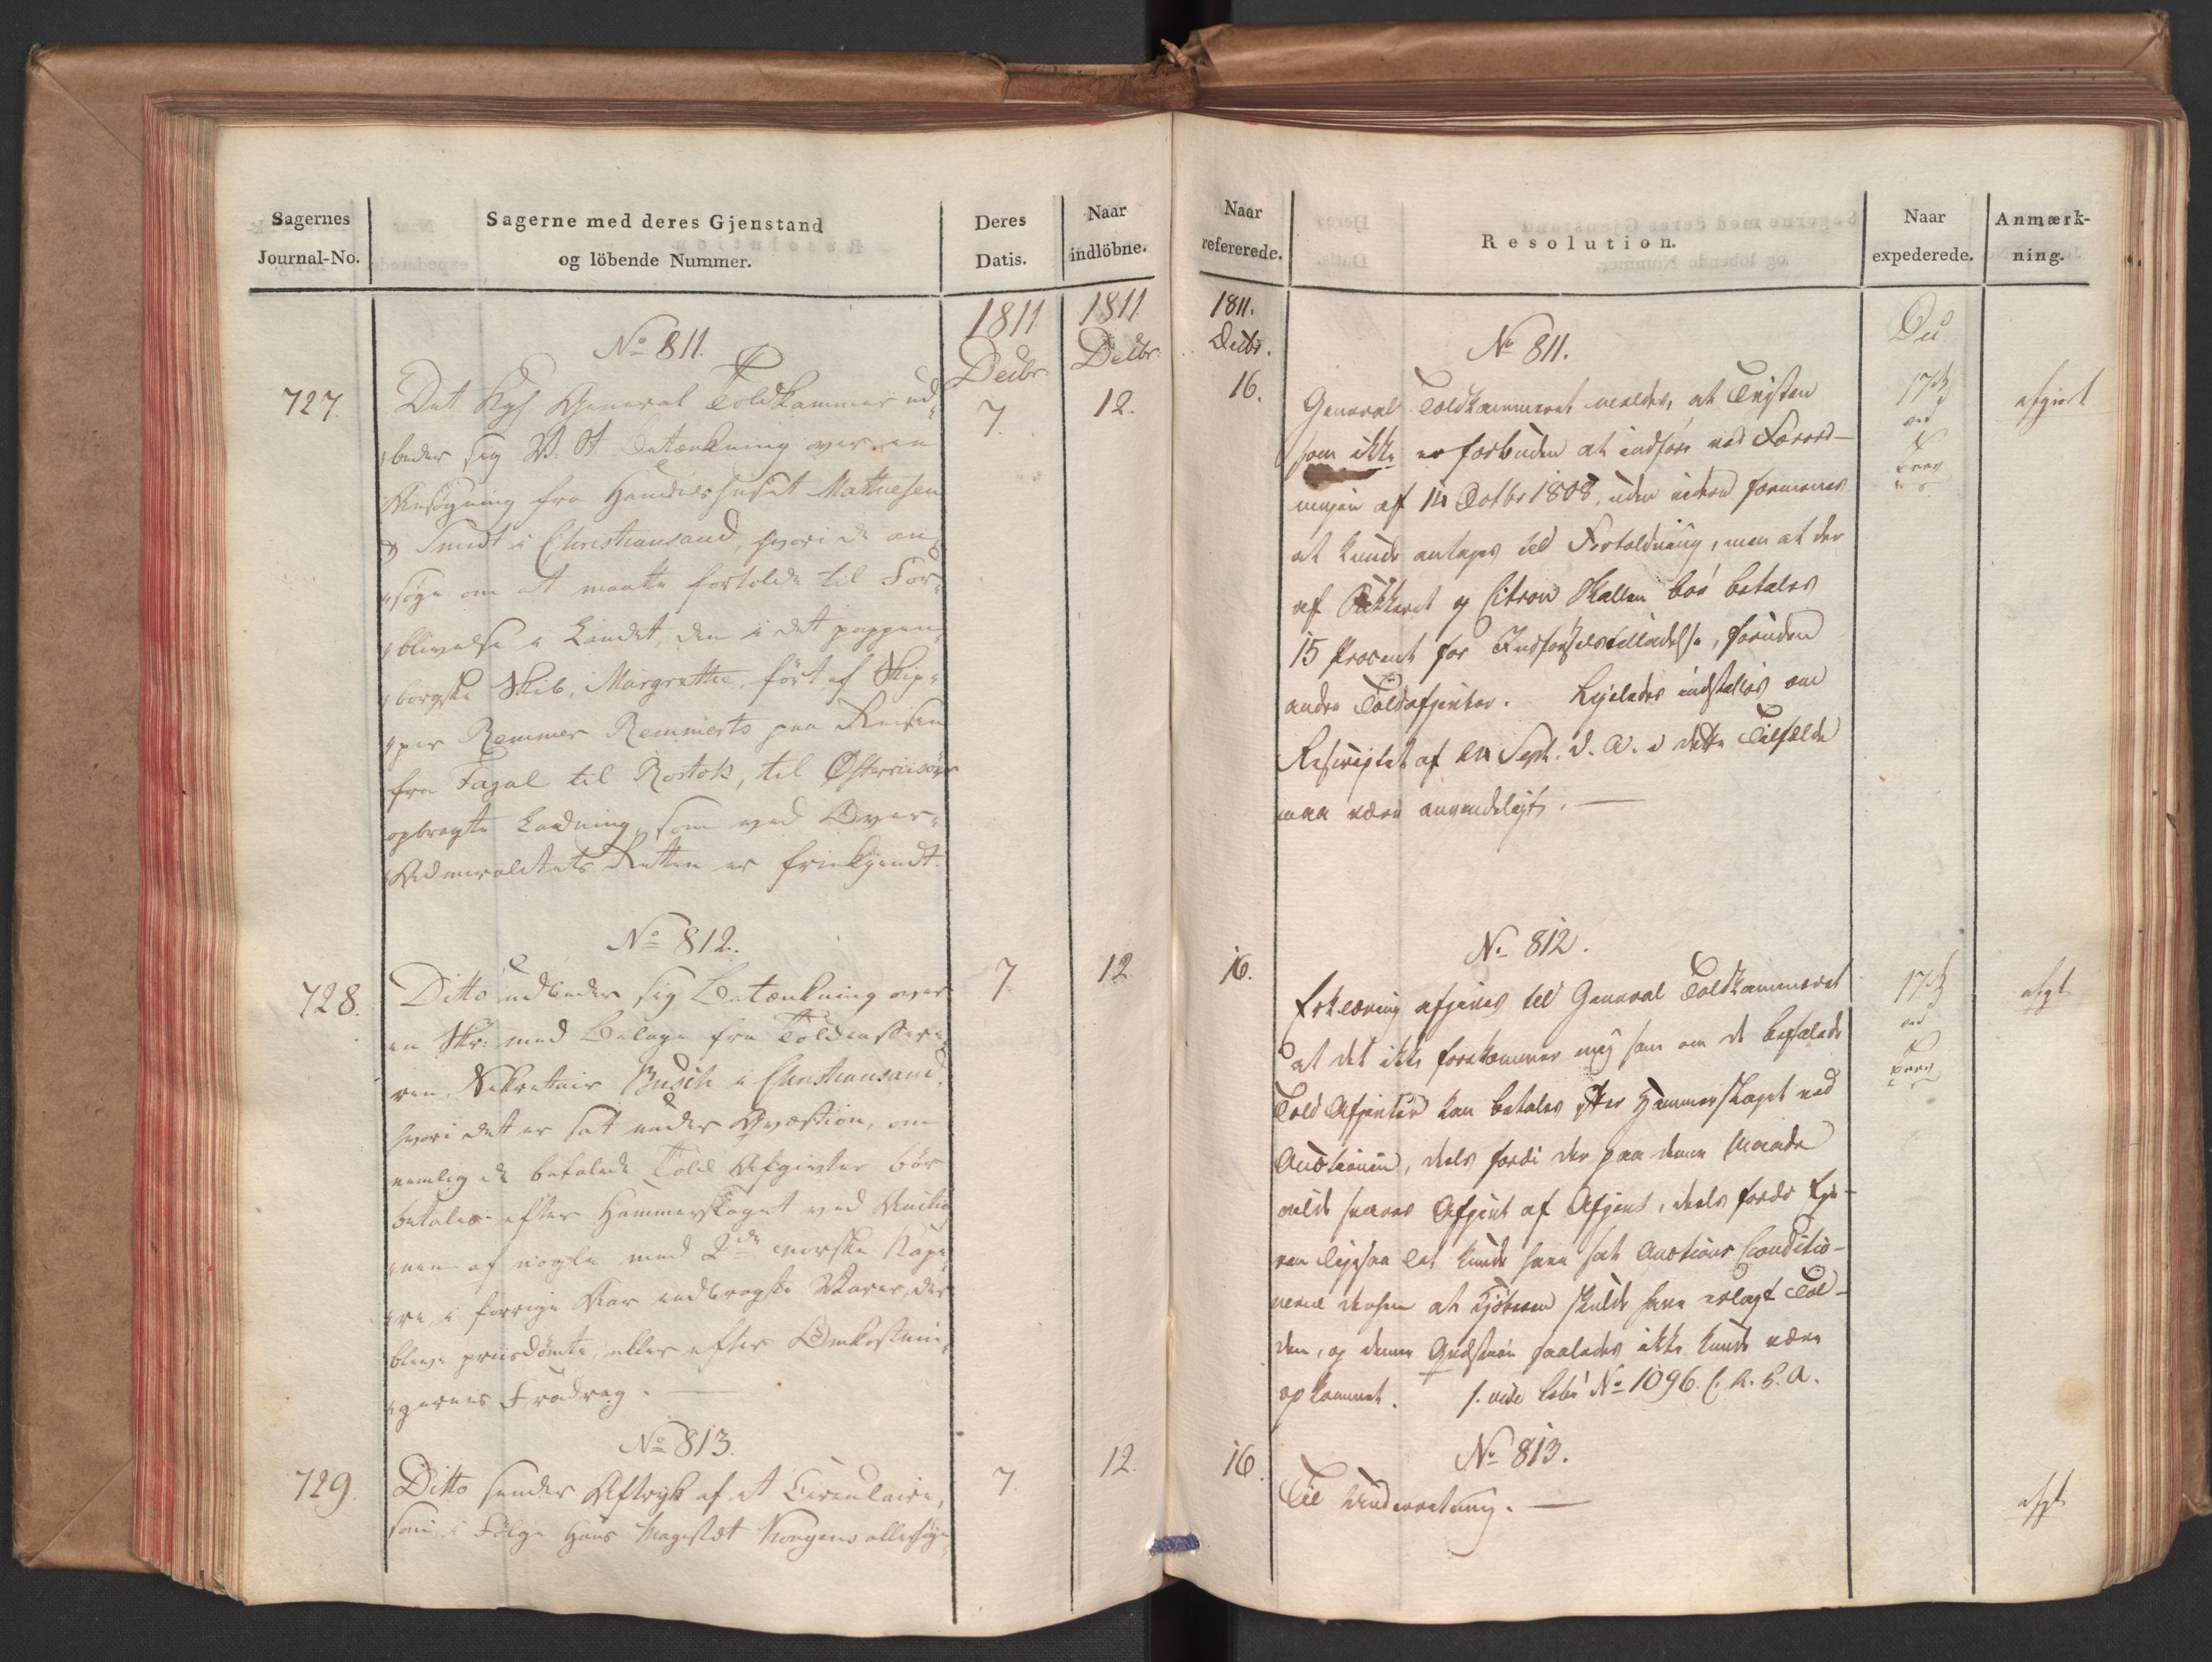 Sagernes
Journal-No.
Sagerne med deres Gjenstand
og löbende Nummer.
Deres
Datis.
Naar
indlöbne.
1811
Decbr.
1811
Decbr.
No 811.
727.
7.
12.
Det Kgl. General Toldkammer ud-
beder sig B. A. Betænkning over en
Ansøgning fra Handelshuset Mathiesen
& Smidt i Christiansand, hvori de an-
søge om at maatte fortolde til For-
blivelse i Landet, den i det pappen-
borgske Skib, Margrethe, ført af Skip-
per Remmer Remmerts paa Reisen
fra Fayal til Rostok, til Østerriisöer
opbragte Ladning, som ved Over-
Admiralitets Retten er friekjendt.
No 812.
728.
7
12
Ditto udbeder sig Betænkning over
en Skr: med Bilage fra Toldkassere-
ren, Sekretair Busch i Christiansand,
hvori det er sat under Qvæstion, om
nemlig de befalede Told Afgivter bør
betales efter Hammerslaget ved Auctio-
nen af nogle med 2de norske Kape-
re, i forrige Aar indbragte Varer, der
bleve priisdömte, eller efter Omkostnin-
gernes Fradrag. —
No 813.
729.
7.
12.
Ditto sender Aftryk af et Circulaire,
som i Følge Hans Majestæt Kongens allerhöie-
Naar
refererede.
Resolution.
Naar
expederede.
Anmærk-
ning.
1811.
Decbr.
16.
No 811.
17
afgjort
General Toldkammeret meldes, at
som ikke er forbuden at indføre ved Forord-
ningen af 14 Octbr 1808, uden videre formenes
at kunde antages til Fortoldning, men at der
af Sukkeret og Citron Skallen bør betales
15 Procent for Indførselstilladelse, foruden
andre Toldafgivter. Ligeledes indstilles om
Rescriptet af 24 Sept. d. A. i dette Tilfælde
maa være anvendeligt. —
No 812.
16.
17
afgt
Erklæring afgives til General Toldkammeret
at det ikke forekommer mig som om de befalede
Told Afgivter kan betales efter Hammerslaget ved
Auctionen, deels fordi der paa denne Maade
vilde svares Afgivt af Afgivt, deels fordi Eje-
ren ligesaa let kunde have sat Auctions Conditio-
nerne derhen at Kjöberen skulde have erlagt Tol-
den, og denne Qvæstion saaledes ikke kunde være
opkommet. /: vide No 1096.
No 813.
16.
Til Underretning. —
afgt